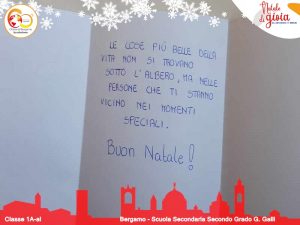 Natale di
gioia
LE COSE PIÙ BELLE DELLA
VITA NON SI TROVANO
SOTTO L'ALBERO, MA NELLE
PERSONE CHE TI STANNO
VICINO NEI MOMENTI
SPECIALI.
BUON NATALE!
Classe 1A-al
Bergamo - Scuola Secondaria Secondo Grado G. Galli